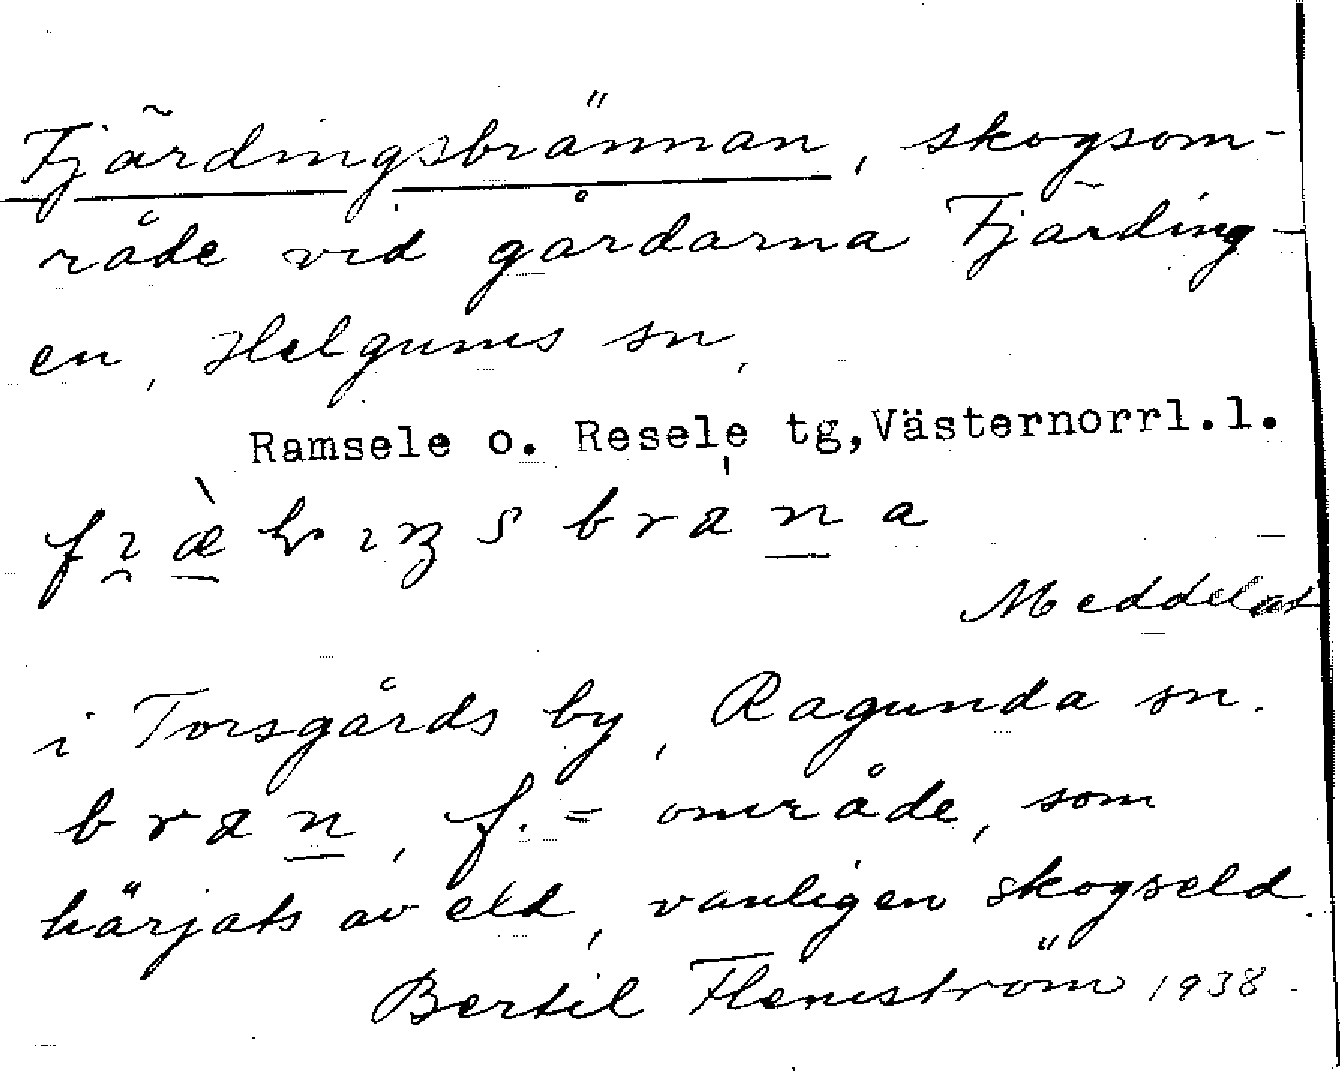 Fjärdingsbrännan, skogsom-
råde vid gårdarna Fjärding-
en, Helgums sn,
Ramsele o. Resele tg, Västernorrl.l.
Meddelat
i Torsgårds by, Ragunda sn.
bran, f. = område, som
härjats av eld, vanligen skogseld.
Bertil Flemström 1938.